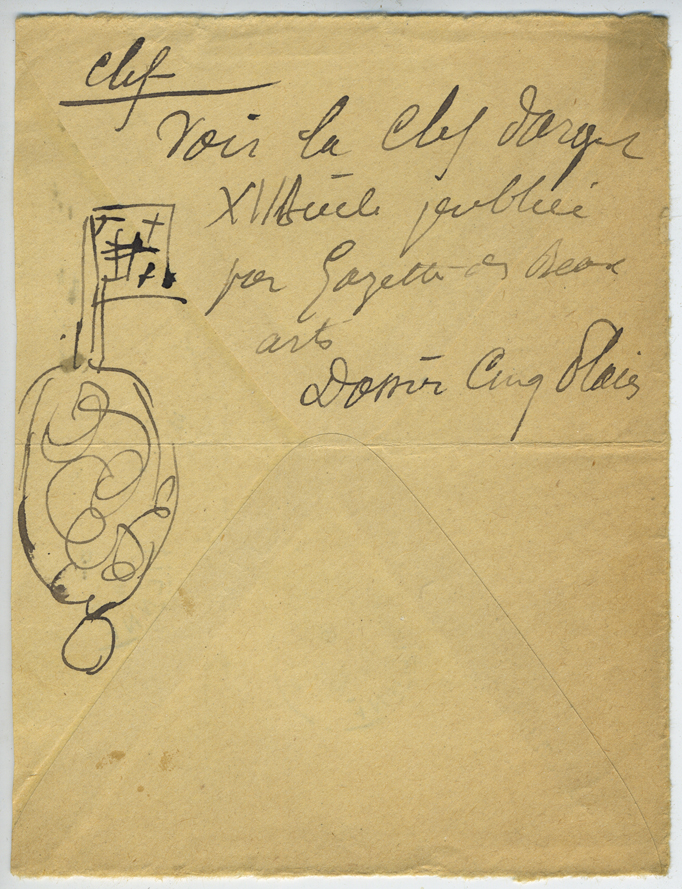 Clef
Voir la Clef d'argent
XIII siècle publiée
par Gazette des Beaux
arts
Dossier Cinq